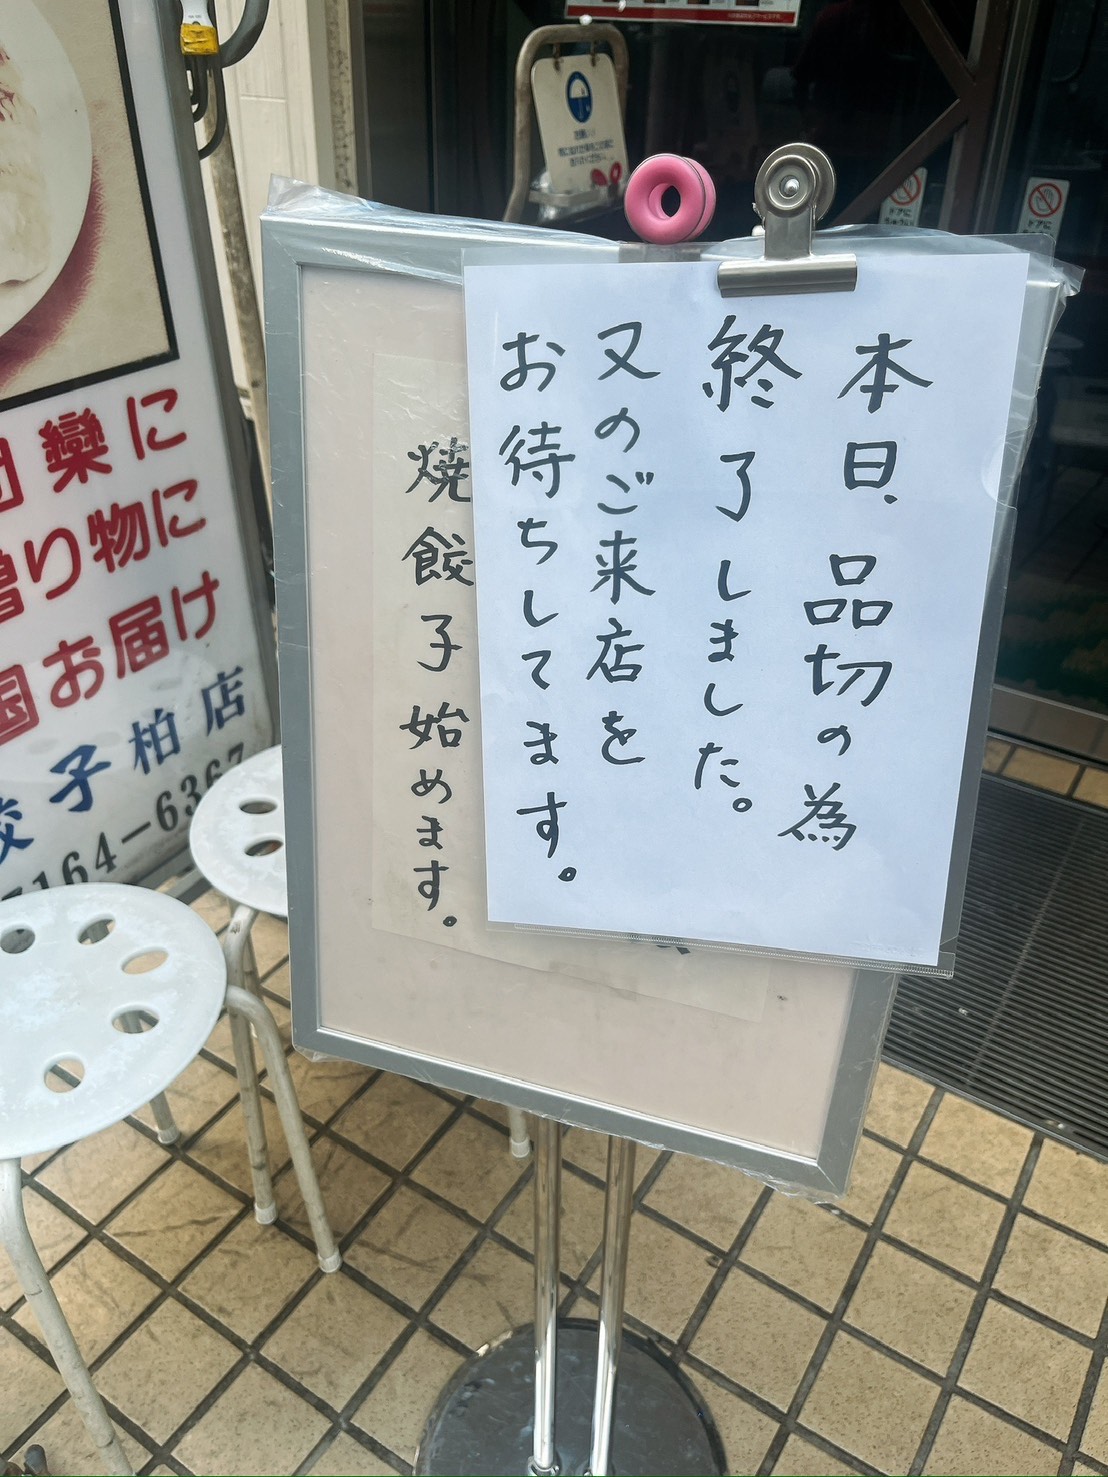 本日、品切の為
終了しました。
又のご来店を
お待ちしてます。
焼餃子始めます。
団欒に
贈り物に
国お届け
餃子柏店
7164-6367
ドアに
ドアに